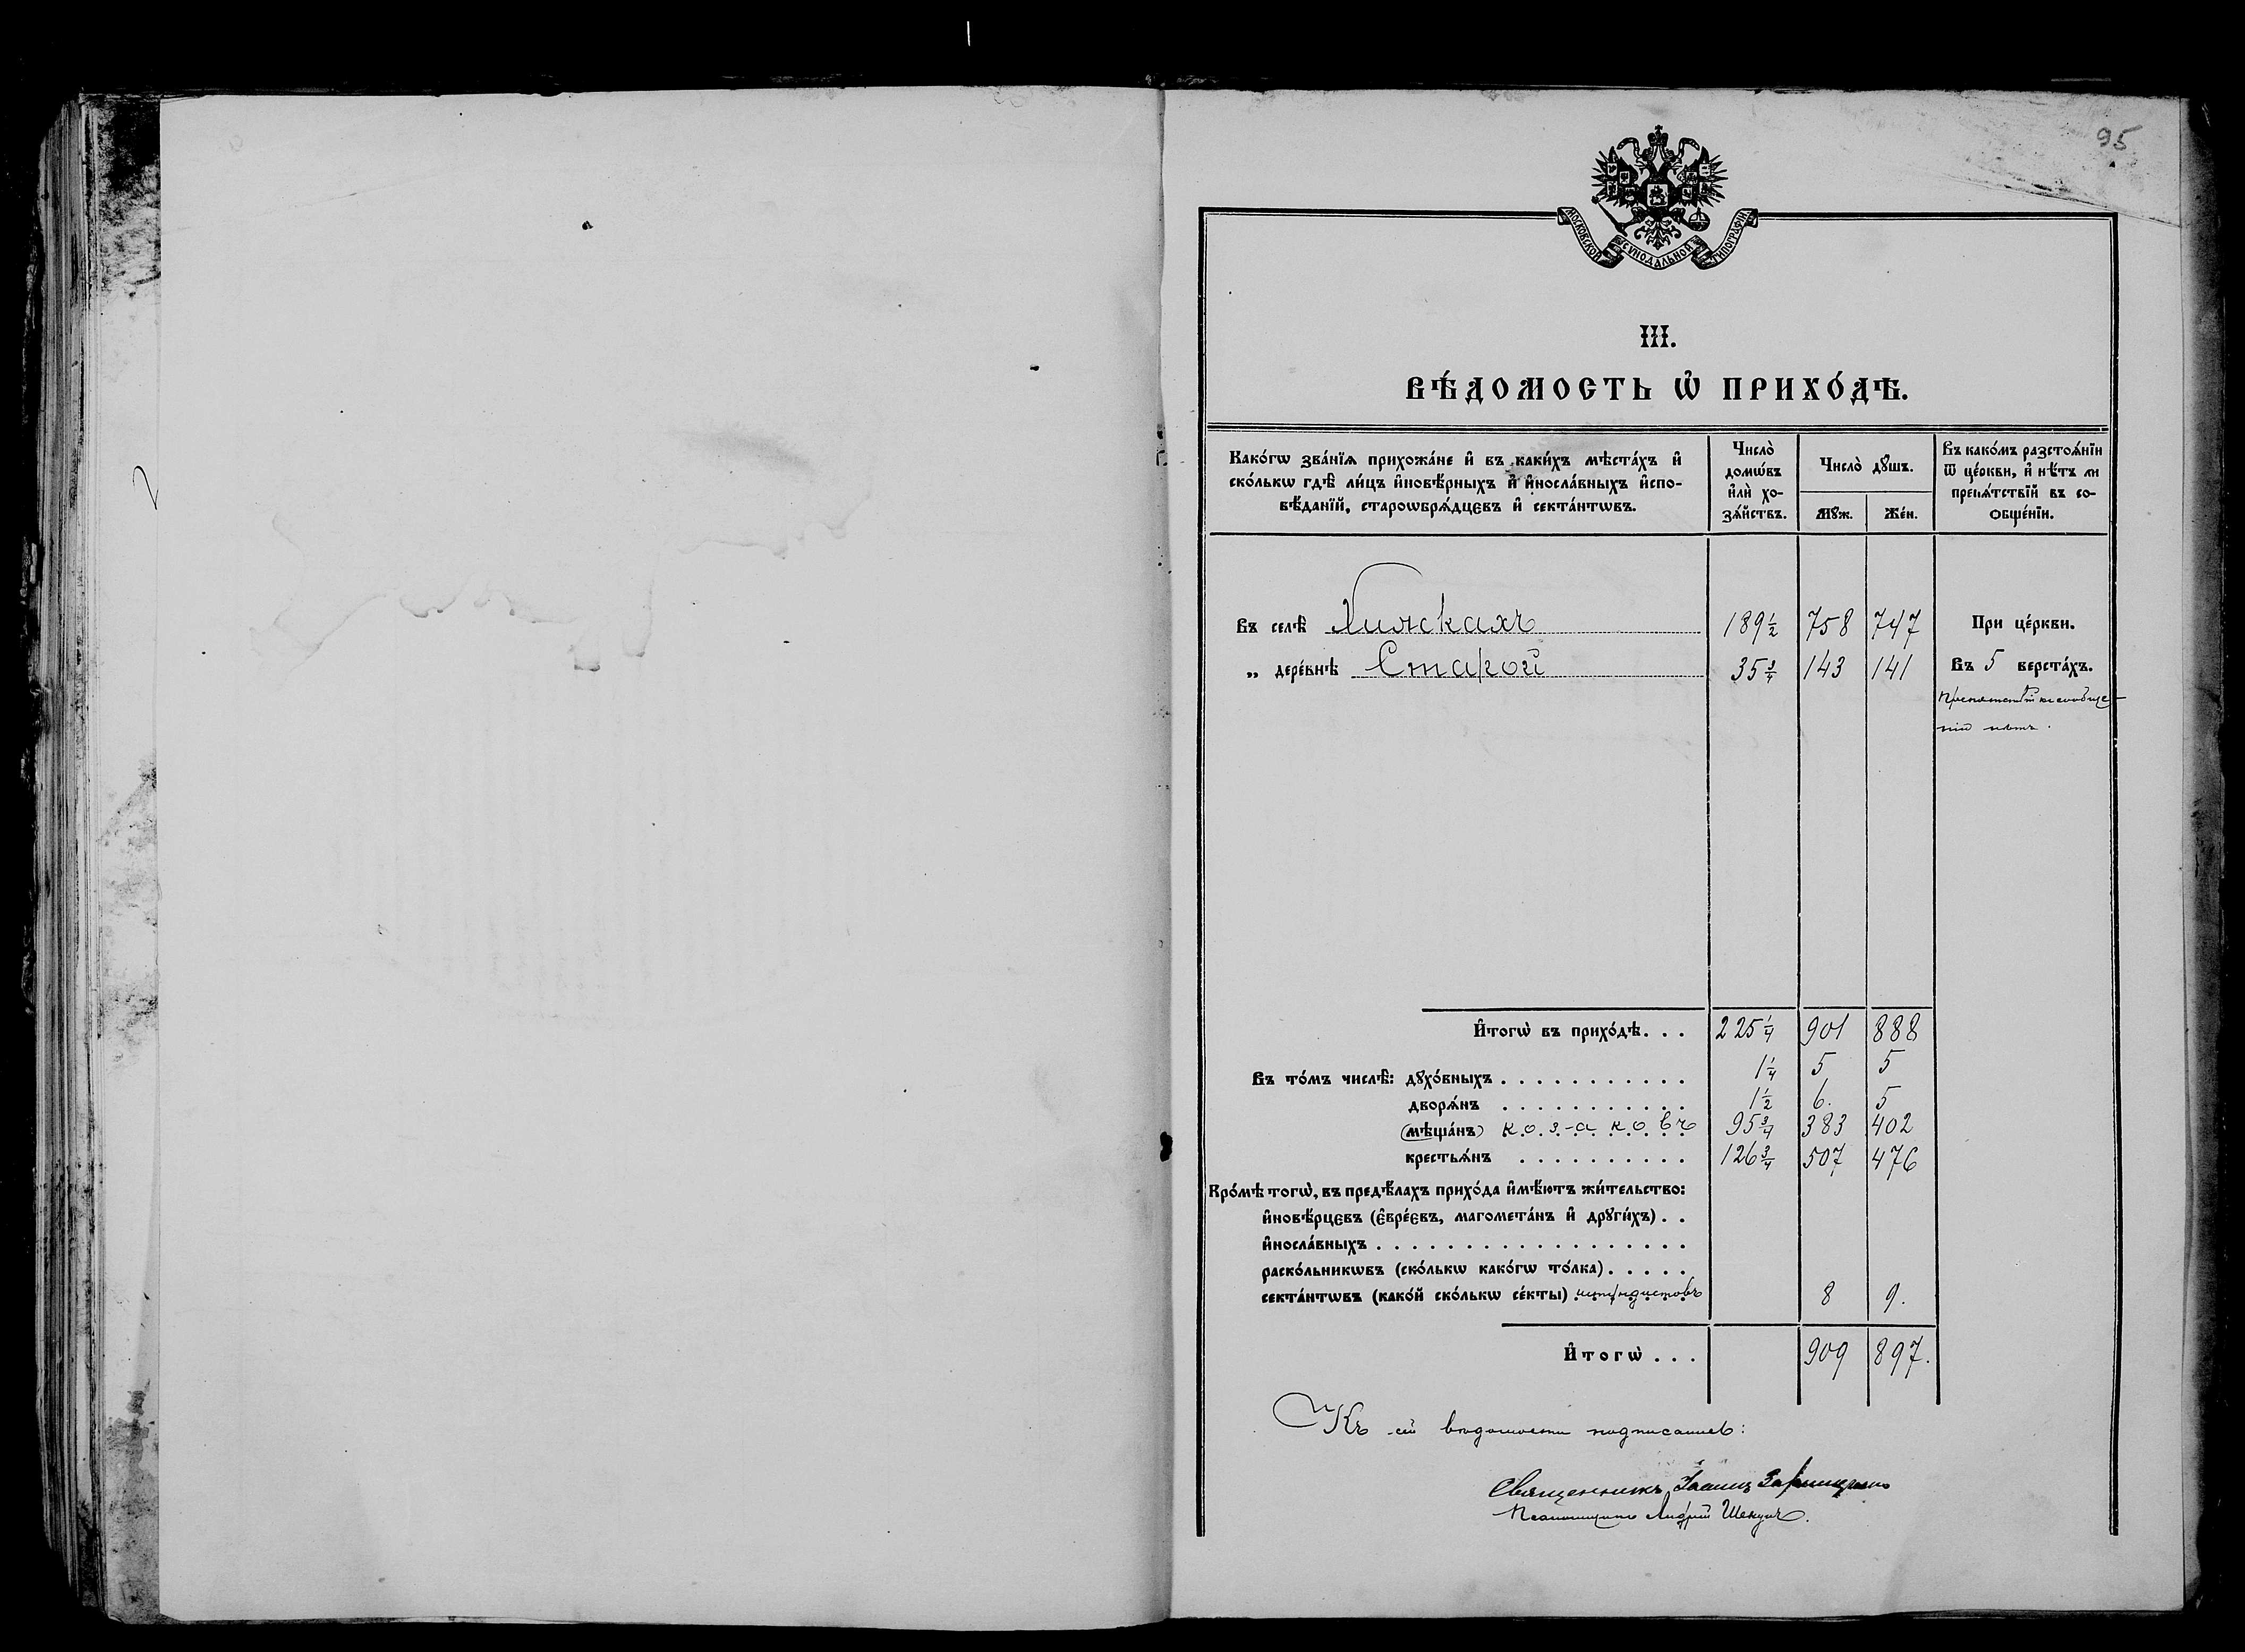 95
МОСКОВСКОЙ СУНОДАЛЬНОЙ ТИПОГРАФІИ
III.
ВѢ́ДОМОСТЬ Ѡ҆ ПРИХО́ДѢ.
Како́гѡ зва́нїѧ прихожа́не и҆ въ каки́хъ мѣста́хъ и҆
ско́лькѡ гдѣ̀ ли́цъ и҆новѣ́рныхъ и҆ и҆носла́вныхъ и҆спо-
вѣ́данїй, староѡбрѧ́дцєвъ и҆ секта́нтѡвъ.
Число̀
домѡ́въ
и҆лѝ хо-
зѧ́йствъ.
Число̀ дꙋ́шъ.
Мꙋ́ж.
Же́н.
Въ како́мъ разстоѧ́нїи
ѿ це́ркви, и҆ нѣ́тъ ли
препѧ́тствїй въ со-
ѻбще́нїи.
Въ селѣ̀ Хижкахъ 189½ 758 747 При це́ркви.
„ дере́внѣ Старой 35¾ 143 141 Въ 5 верста́хъ.
Препятствій къ сообще-
нію нѣтъ.
И҆тогѡ̀ въ прихо́дѣ. . . 225¼ 901 888
Въ то́мъ числѣ̀: дꙋхо́вныхъ . . . . . . . . . . . 1¼ 5 5
дворѧ́нъ . . . . . . . . . . . 1½ 6. 5
(мѣща́нъ) козаковъ 95¾ 383 402
крестьѧ́нъ . . . . . . . . . . 126¾ 507 476
Кро́мѣ тогѡ̀, въ предѣ́лахъ прихо́да и҆мѣ́ютъ жи́тельство:
и҆новѣ́рцєвъ (є҆вре́євъ, магомета́нъ и҆ дрꙋги́хъ) . .
и҆носла́вныхъ . . . . . . . . . . . . . . . . . .
раско́льникѡвъ (ско́лькѡ како́гѡ то́лка) . . . . .
секта́нтѡвъ (како́й ско́лькѡ се́кты) штундистовъ 8 9.
И҆тогѡ̀ . . . 909 897.
Къ сей вѣдомости подписались:
Священникъ Іоаннъ
Псаломщикъ Андрей